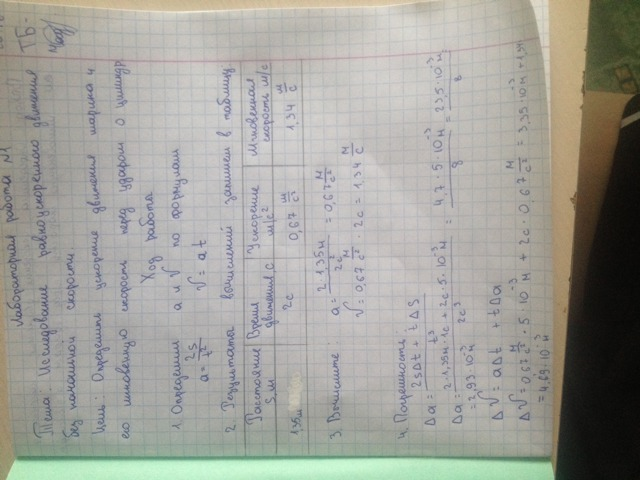 Лабораторная работа №1
ТБ-
Тема: Исследование равноускоренного движения
без начальной скорости.
Цель: Определить ускорение движения шарика и
его мгновенную скорость перед ударом о цилиндр
Ход работы
1. Определим a и v по формулам
a = 2S/t² v = at
2. Результаты вычислений запишем в таблицу:
Расстояние S,м Время движения,с Ускорение м/с² Мгновенная скорость м/с
1,35м 2с 0,67 м/с² 1,34 м/с
3. Вычислите: a = 2·1,35м/2с² = 0,67 м/с²
v = 0,67 м/с² · 2с = 1,34 м/с
4. Погрешность:
Δa = 2SΔt + tΔS / t³
Δa = 2·1,35м·1с + 2с·5·10⁻³м / 2с³ = 4,7·5·10⁻³м / 8 = 23,5·10⁻³м / 8
= 2,93·10⁻³м
Δv = aΔt + tΔa
Δv = 0,67 м/с² · 5·10⁻³м + 2с · 0,67 м/с² = 3,35·10⁻³м + 1,34
= 4,69·10⁻³м